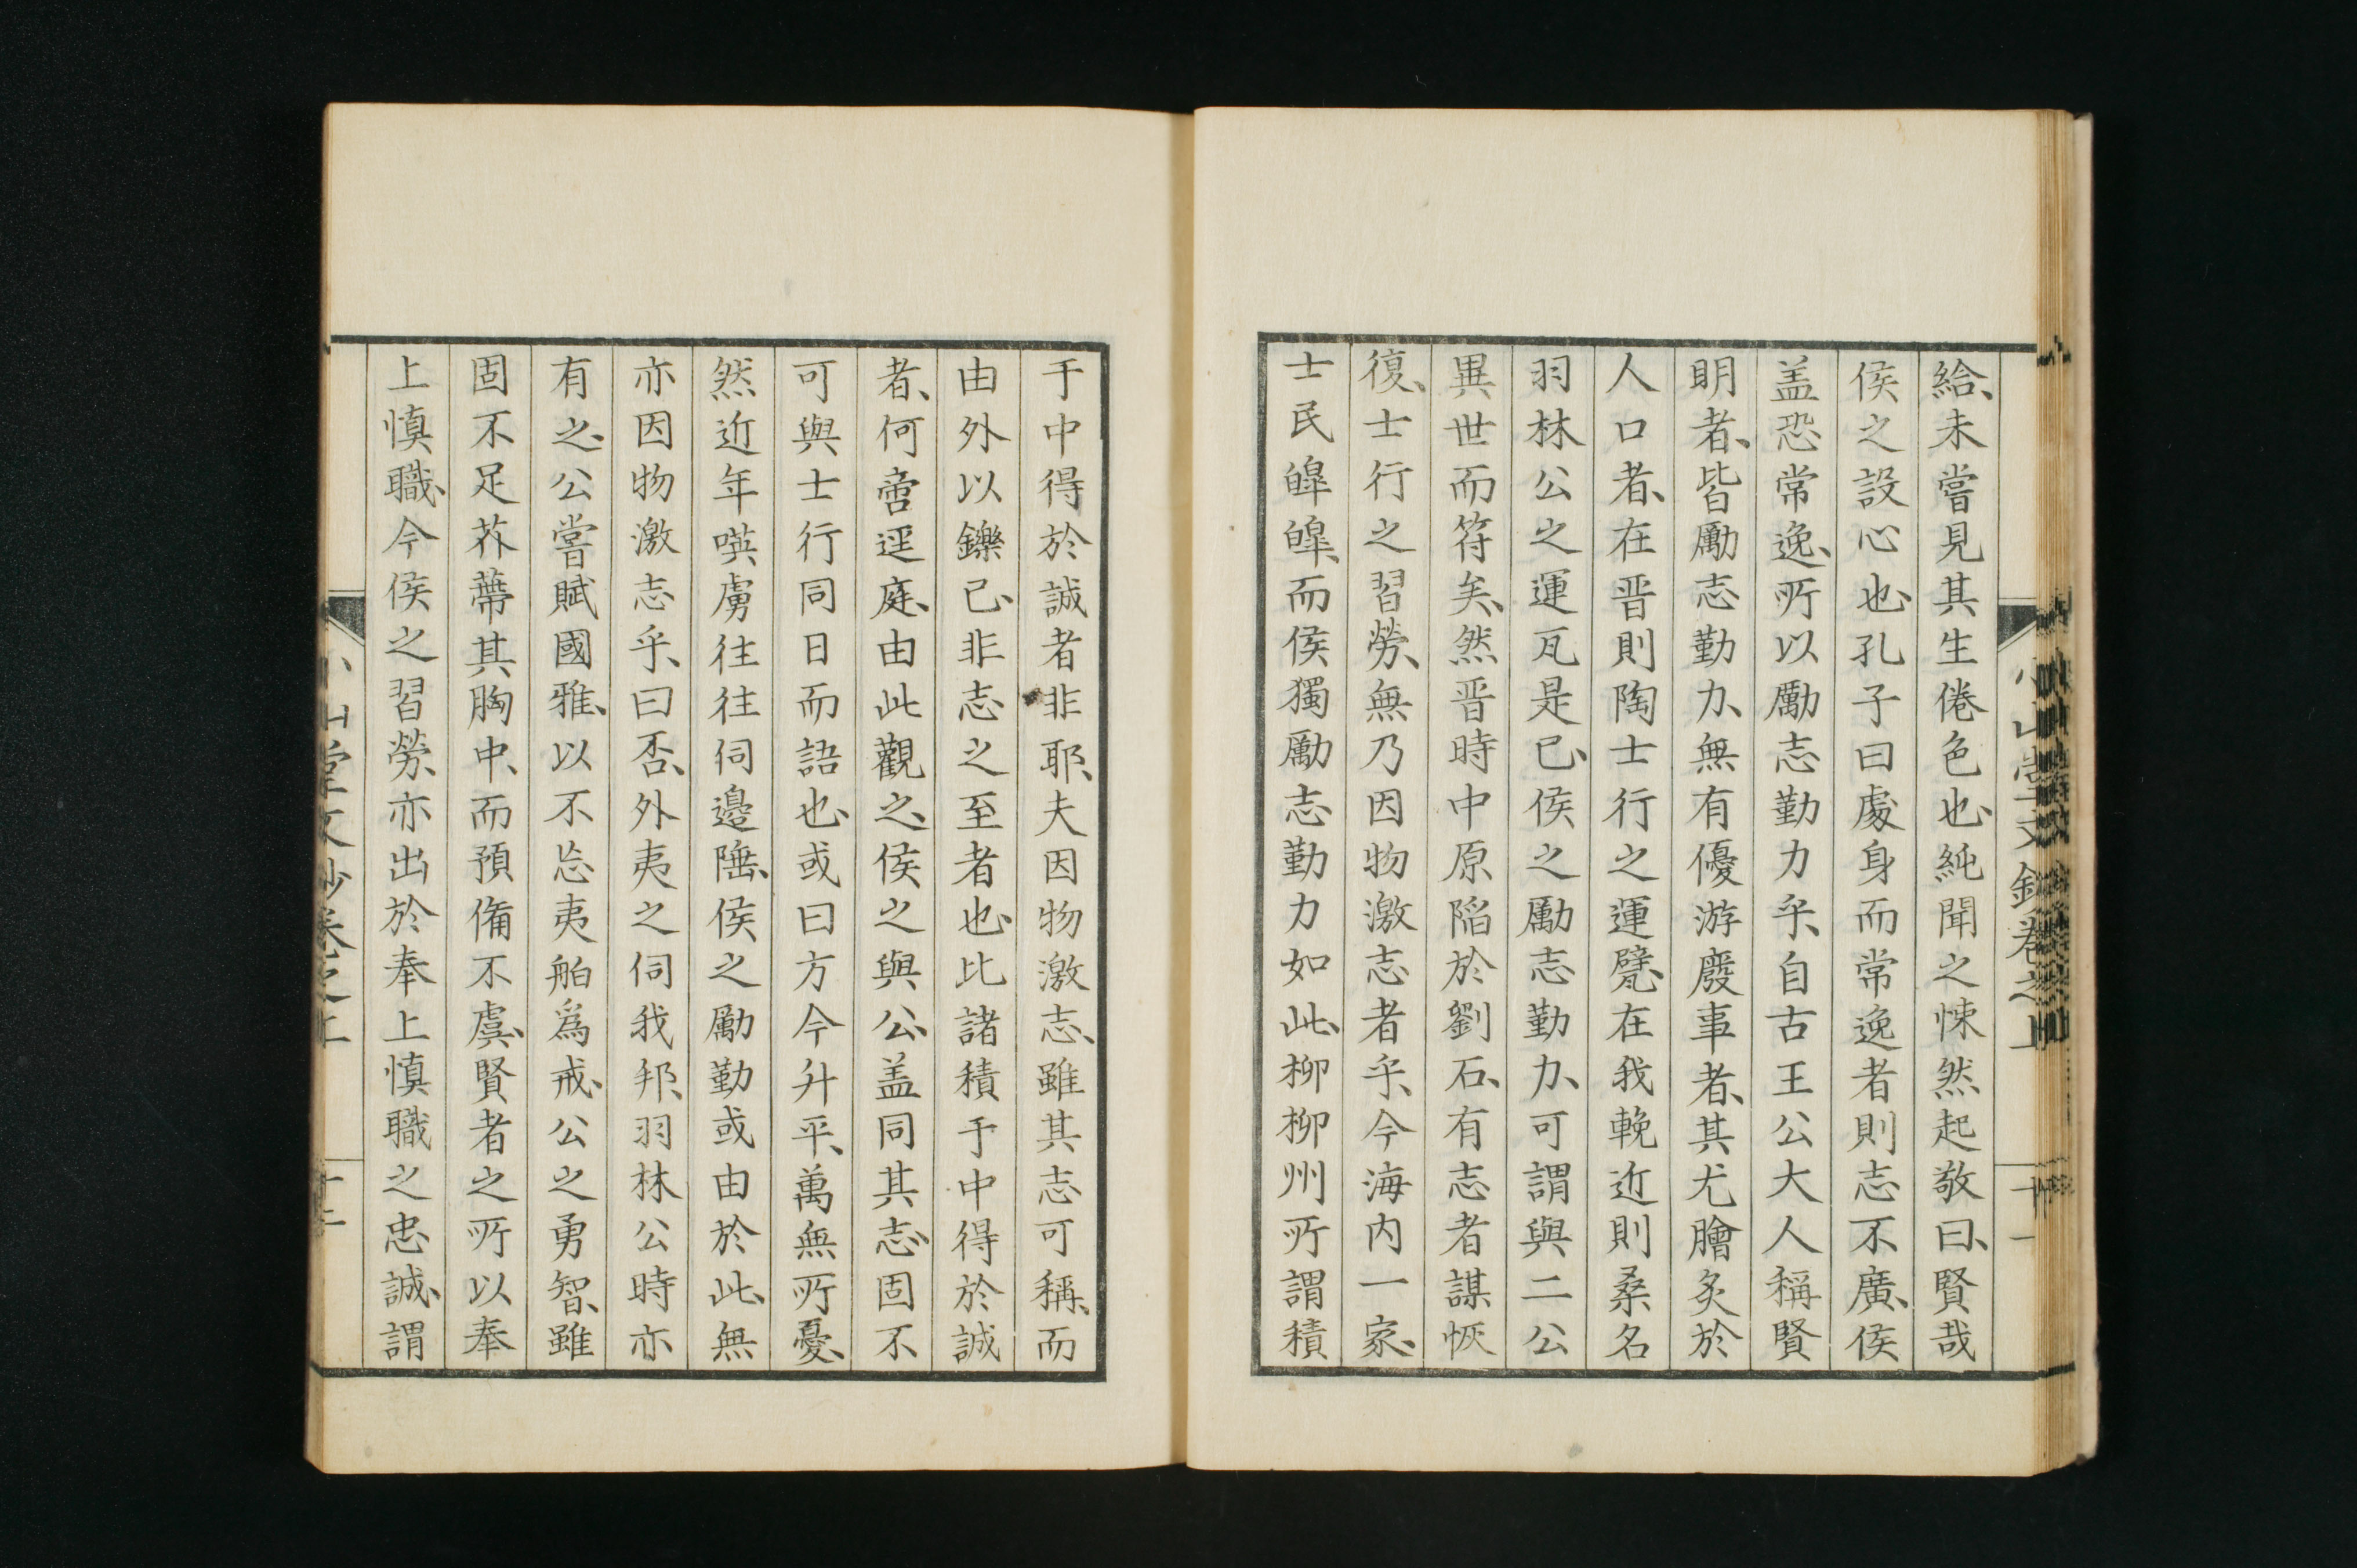 給、未嘗見其生倦色也、純聞之悚然起敬曰、賢哉
侯之設心也、孔子曰處身而常逸者則志不廣、侯
盖恐常逸、所以勵志勤力乎、自古王公大人稱賢
明者、皆勵志勤力、無有優游廢事者、其尤膾炙於
人口者、在晋則陶士行之運甓、在我輓近則桑名
羽林公之運瓦是已、侯之勵志勤力、可謂與二公
異世而符矣、然晋時中原陷於劉石、有志者謀恢
復、士行之習勞、無乃因物激志者乎、今海内一家、
士民皥皥、而侯獨勵志勤力如此、柳柳州所謂積
于中得於誠者非耶、夫因物激志、雖其志可稱、而
由外以鑠己、非志之至者也、比諸積于中得於誠
者、何啻逕庭、由此觀之、侯之與公、盖同其志、固不
可與士行同日而語也、或曰方今升平、萬無所憂、
然近年暎虜往往伺邊陲、侯之勵勤或由於此、無
亦因物激志乎、曰否、外夷之伺我邦、羽林公時亦
有之、公嘗賦國雅、以不忘夷舶爲戒、公之勇智、雖
固不足芥蔕其胸中、而預備不虞、賢者之所以奉
上慎職、今侯之習勞、亦出於奉上慎職之忠誠、謂
小山堂文鈔卷之上